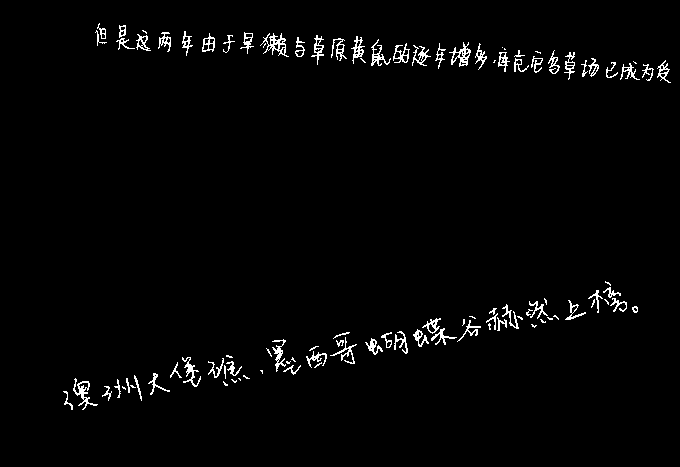 但是这两年由于旱獭与草原黄鼠的逐年增多,库克尼乌草场已成为受
澳洲大堡礁、墨西哥蝴蝶谷赫然上榜。